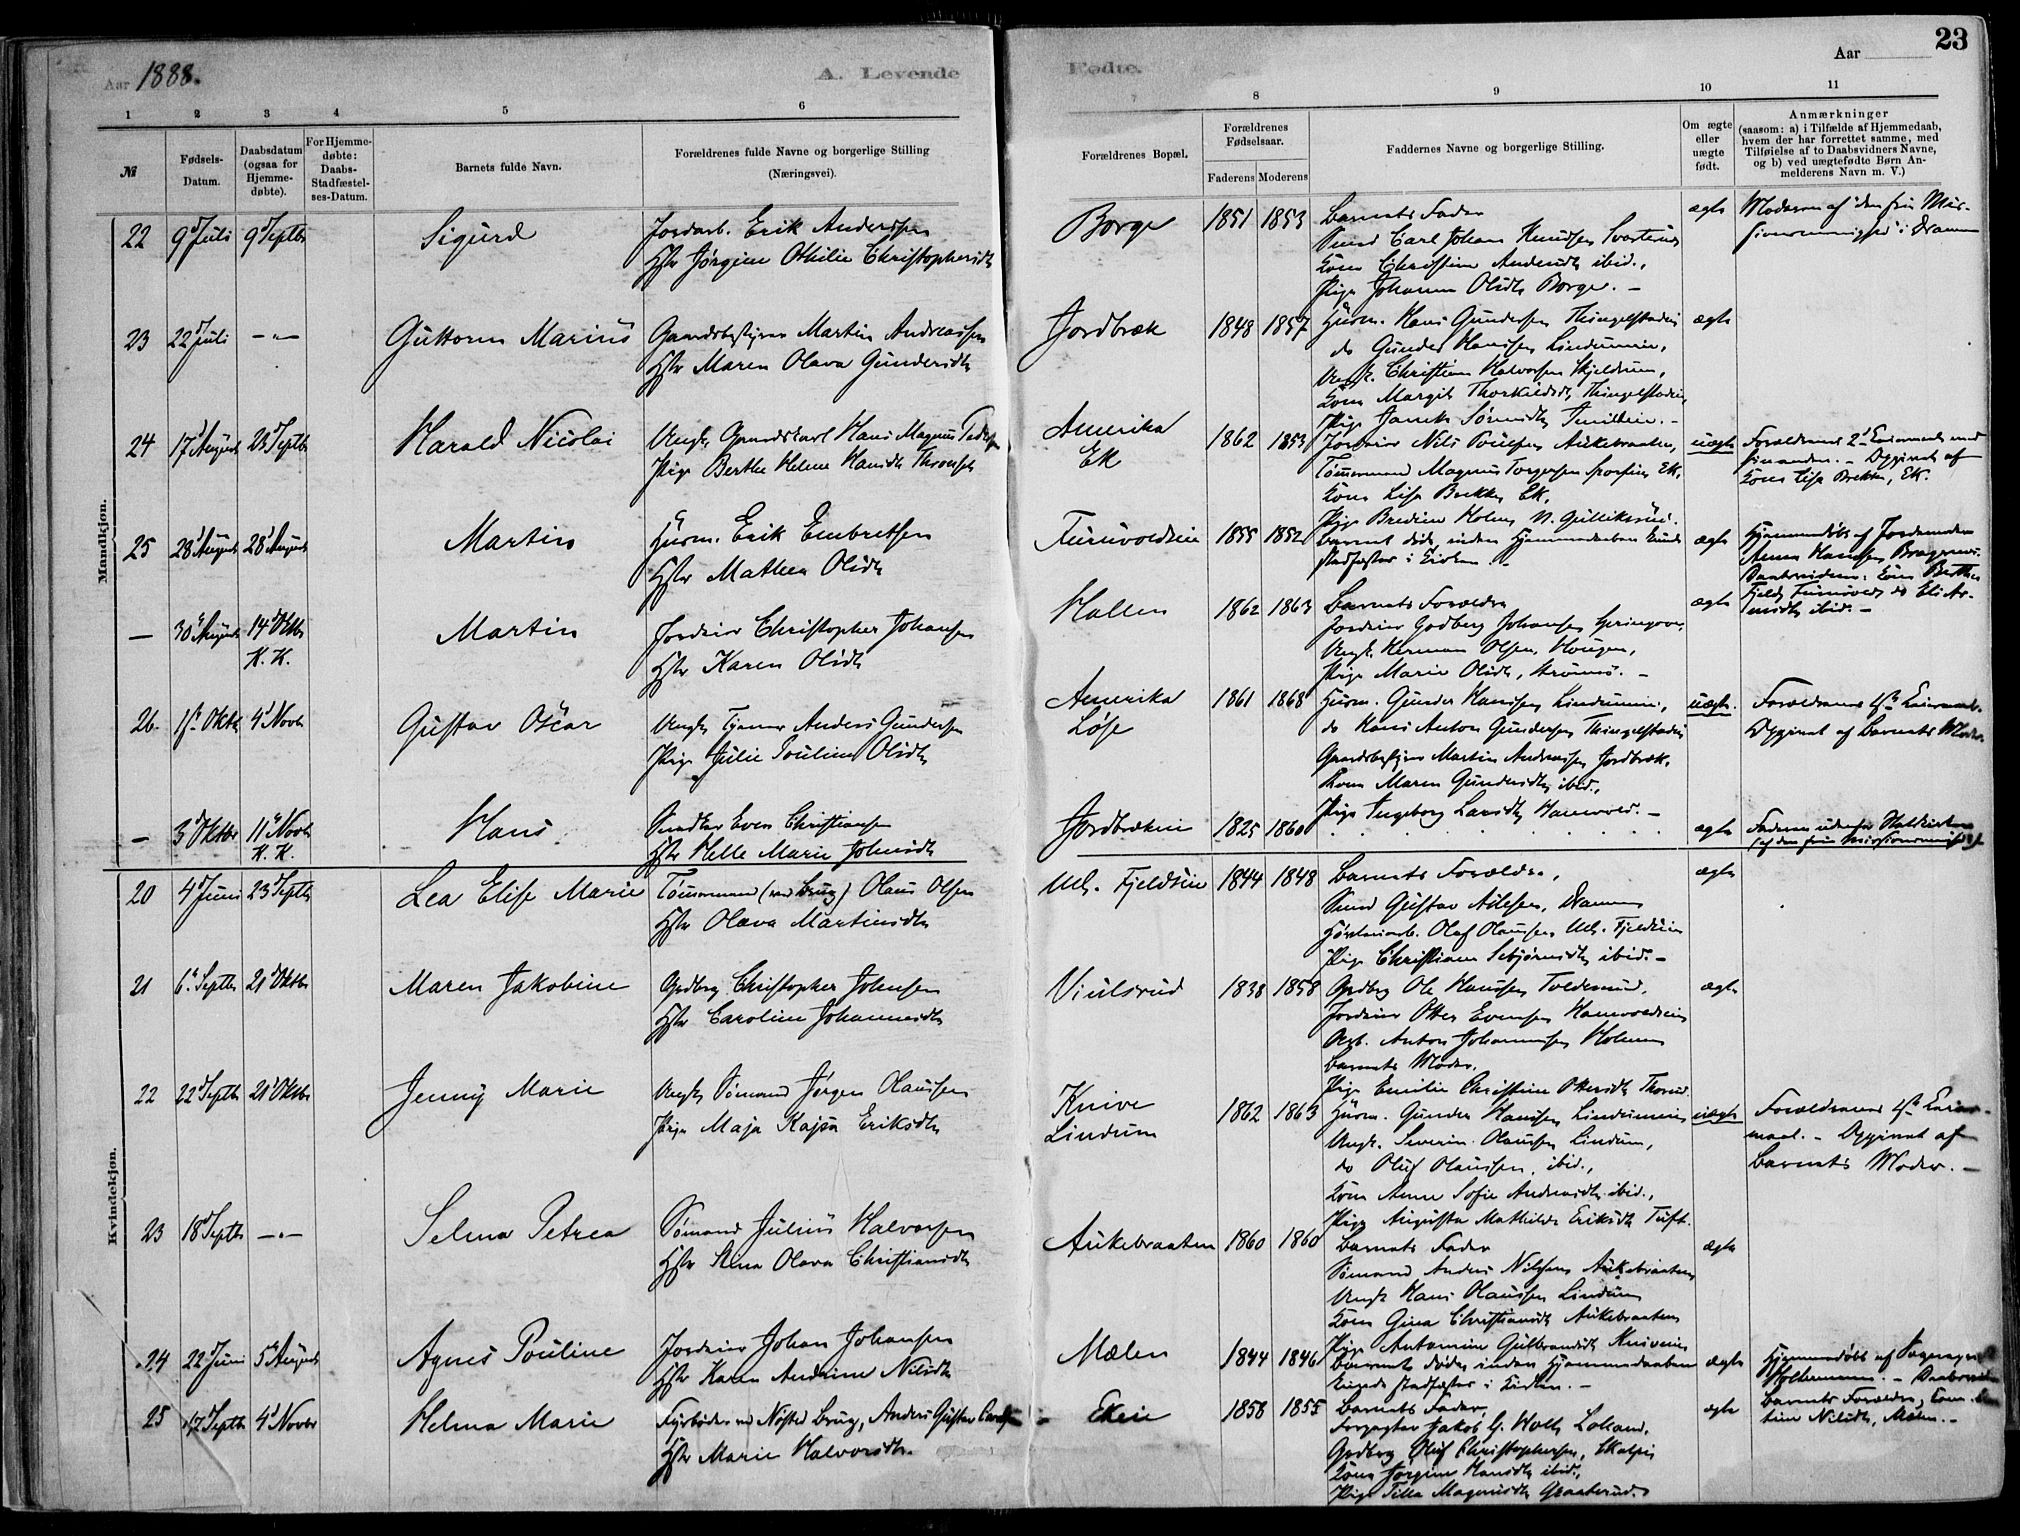 Aar 1888.
A. Levende
Fødte.
Aar
23
1 2 3 4 5 6
8 9 10 11
№
Fødsels-Datum.
Daabsdatum (ogsaa for Hjemme-døbte).
For Hjemme-døbte: Daabs-Stadfæstel-ses-Datum.
Barnets fulde Navn.
Forældrenes fulde Navne og borgerlige Stilling
(Næringsvei).
Forældrenes Bopæl.
Forældrenes Fødselsaar.
Faderens Moderens
Faddernes Navne og borgerlige Stilling.
Om ægte eller uægte født.
Anmærkninger
(saasom: a) i Tilfælde af Hjemmedaab,
hvem der har forrettet samme, med
Tilføielse af to Daabsvidners Navne,
og b) ved uægtefødte Børn An-
melderens Navn m. V.)
Mandkjøn.
22 9d Juli 9d Septbr Sigurd Jordarb. Erik Anderssen
Hstr Jørgine Othilie Christophersdtr
Borge 1851 1853 Barnets Fader
Smed Carl Johan Knudsen Svarterud
Kone Christine Andersdtr ibid.,
Pige Johanne Olsdtr Borge. –
ægte Moderen af den frie Mis-
sionsmenighed i Drammen
23 22d Juli – " – Guttorm Marius Gaardsbestyrer Martin Andreassen
Hstr Maren Olava Gundersdtr
Jordbræk 1848 1857 Husm. Hans Gundersen Thingelstadeie
do Gunder Hanssen Lindumeie,
Ungk. Christian Halvorsen Skjeldrum,
Kone Margit Thorkildsdtr Thingelstadeie,
ægte
24 17d August 23d Septbr Harald Nicolai Ungk. Gaardskarl Hans Magnus Peders
Pige Berthe Helene Hansdtr
Amerika
Ek
1862 1853 Jordeier Nils Poulsen Aukebraaten,
Tømmermand Magnus Torgersen Ek,
Kone Lise Brekke Ek,
Pige Bredine Holm N. Gulliksrud.
uægte Forældrenes 2d Leiermaal med
hinanden. – Opgivet af
Kone Lise Brekke, Ek.
25 28d August 28d August Martin Husm. Erik Embretsen
Hstr Mathea Olsdtr
Furuvoldeie 1855 1852 Barnet døde inden Hjemmedaaben kunde
stadfæstes i Kirken. –
ægte Hjemmedøbt af Jordemoder
Anne Hansen Bragernes.
Daabsvidner: Kone Berthe
Fjeld, Furuvold, do Eli
ibid. –
– 30d August 14d Oktbr
K. K.
Martin Jordeier Christopher Johansen
Hstr Karen Olsdtr
Hallen 1862 1863 Barnets Forældre
Jordeier Godberg Johansen
Ungk. Herman Olsen, Haugen,
Pige Marie Olsdtr, Strømm. –
ægte
26. 1ste Oktbr 4d Novbr Gustav Oscar Ungk. Tjener Anders Gundersen
Pige Julie Pouline Olsdtr
Amerika
Løse
1861 1868 Husm. Gunder Hanssen Lindumeie,
do Hans Anton Gundersen Thingelstadeie
Gaardsbestyrer Martin Andreassen Jordbræk,
Kone Maren Gundersdtr ibid.,
Pige Ingeborg Larsdtr Hamrevold. –
uægte. Forældrenes 1ste Leiermaal.
Opgivet af Barnets Moder.
– 3d Oktbr 11d Novbr
K. K.
Hans Snedker Even Christiansen
Hstr Helle Marie Johnsdtr
Jordbrækeie 1825 1860 ægte Faderen udenfor Statskirken
(af den frie Missionsmenighed).
Kvindekjøn.
20 4d Juni 23d Septbr Lea Elise Marie Tømmermand (ved Brug) Olaus Olsen
Hstr Olava Martinsdtr
Mel. Fjeldeie 1844 1848 Barnets Forældre,
Smed Gustav Nilsen, Drammen
Olaf Olaussen Mel. Fjeldeie
Pige Christiane ibid. –
ægte
21 6d Septbr 21d Oktbr Maren Jakobine Gbrbg Christopher Johnsen
Hstr Caroline Johannesdtr
Viulsrud 1838 1858 Gbrbg Ole Hanssen Toldesrud,
Jordeier Otter Evensen Hamrevoldeie
Arb. Anton Johannessen Holmen
Barnets Moder,
Pige Emilie Christine Ottersdtr Thorud
ægte
22 22d Septbr 21d Oktbr Jenny Marie Ungk. Sømand Jørgen Olaussen
Pige Maja Kajsa Eriksdtr
Knive
Lindum
1862 1863 Husm. Gunder Hanssen Lindumeie
Ungk. Severin Olaussen Lindum,
do Oluf Olaussen, ibid.,
Kone Anne Sofie Andersdtr ibid.,
Pige Augusta Mathilde Eriksdtr Tuft.
uægte Forældrenes 1ste Leier-
maal. – Opgivet af
Barnets Moder. –
23 18d Septbr – " – Selma Petrea Sømand Julius Halvorsen
Hstr Stine Olava Christiansdtr
Aukebraaten 1860 1860 Barnets Fader
Sømand Anders Nilssen Aukebraaten,
Ungk Hans Olaussen Lindum
Kone Gina Christiansdtr Aukebraaten
Pige Antonine Gulbrandsdtr Kniveeie
ægte
24 22d Juni 5d August Agnes Pouline Jordeier Johan Johansen
Hstr Karen Andrine Nilsdtr
Mælen 1844 1846 Barnet døde inden Hjemmedaaben
kunde stadfæstes i Kirken. –
ægte Hjemmedøbt af Sogneprest
Holtermann. – Daabsvidner
Barnets Forældre, Kone
Nilsdtr, Mælen. –
25 12d Septbr 4d Novbr Helma Marie Fyrbøder ved Nøsted Brug, Anders Gustav Carlssen
Hstr Marie Halvorsdtr.
Ekeie 1858 1855 Barnets Fader,
Forpagter Jakob G. Holth Lolland,
Gbrbg Oluf Christophersen, Skalpen
Kone Jørgine Hansdtr ibid.,
Pige Tilla Magnusdtr Graaterud.
ægte